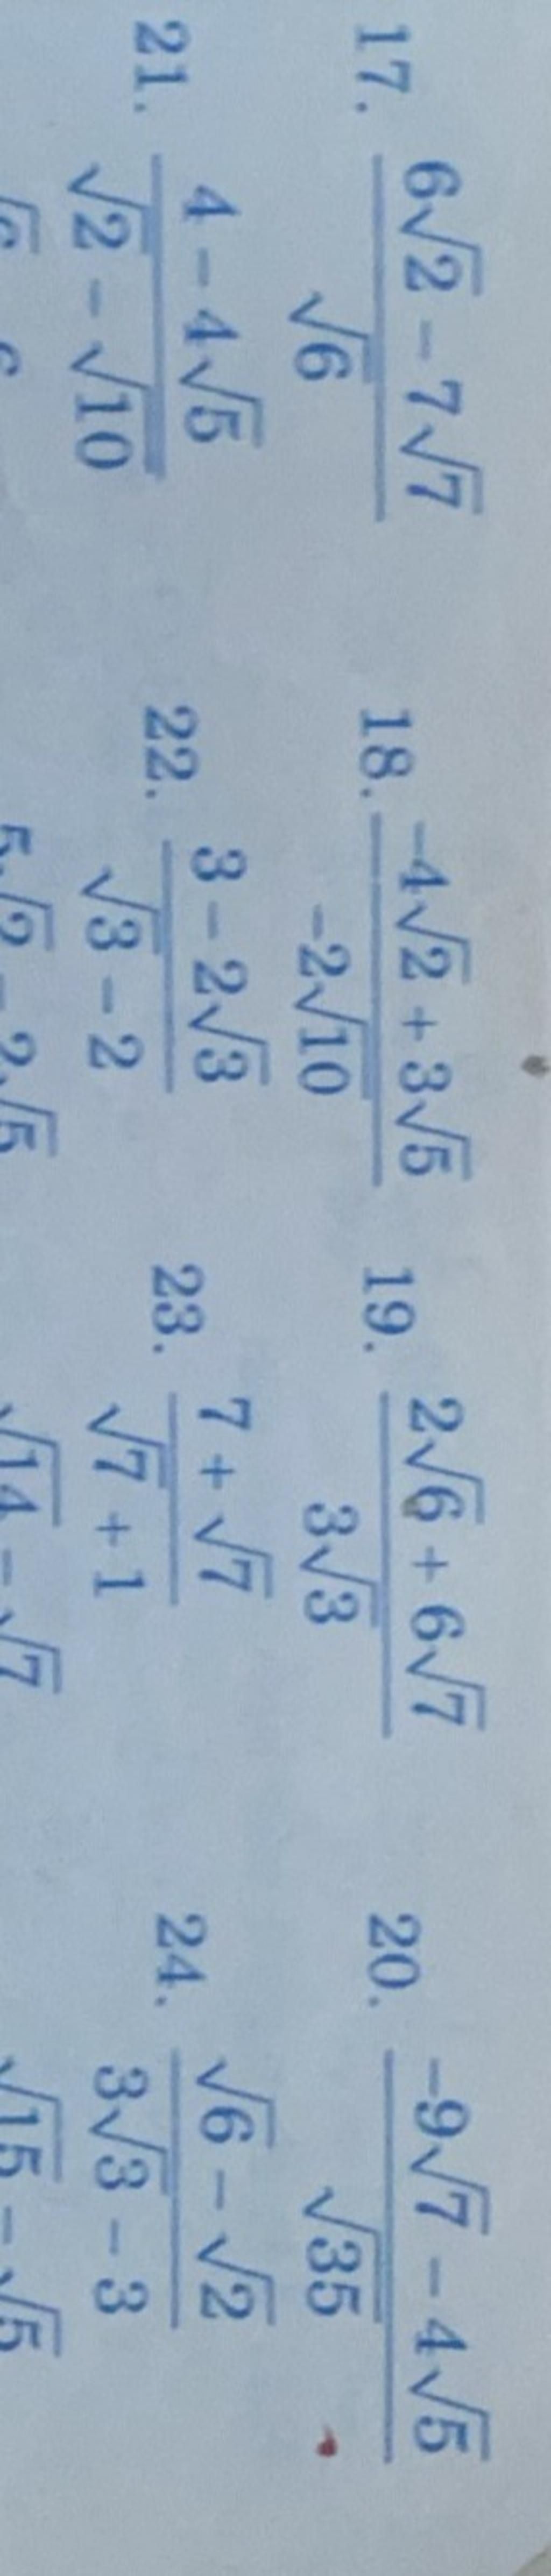 17. (6√2 - 7√7)/√6 18. (-4√2 + 3√5)/(-2√10) 19. (2√6 + 6√7)/(3√3) 20. (-9√7 - 4√5)/√35
21. (4 - 4√5)/(√2 - √10) 22. (3 - 2√3)/(√3 - 2) 23. (7 + √7)/(√7 + 1) 24. (√6 - √2)/(3√3 - 3)
5√2 - 2√5 √14 - √7 √15 - √5